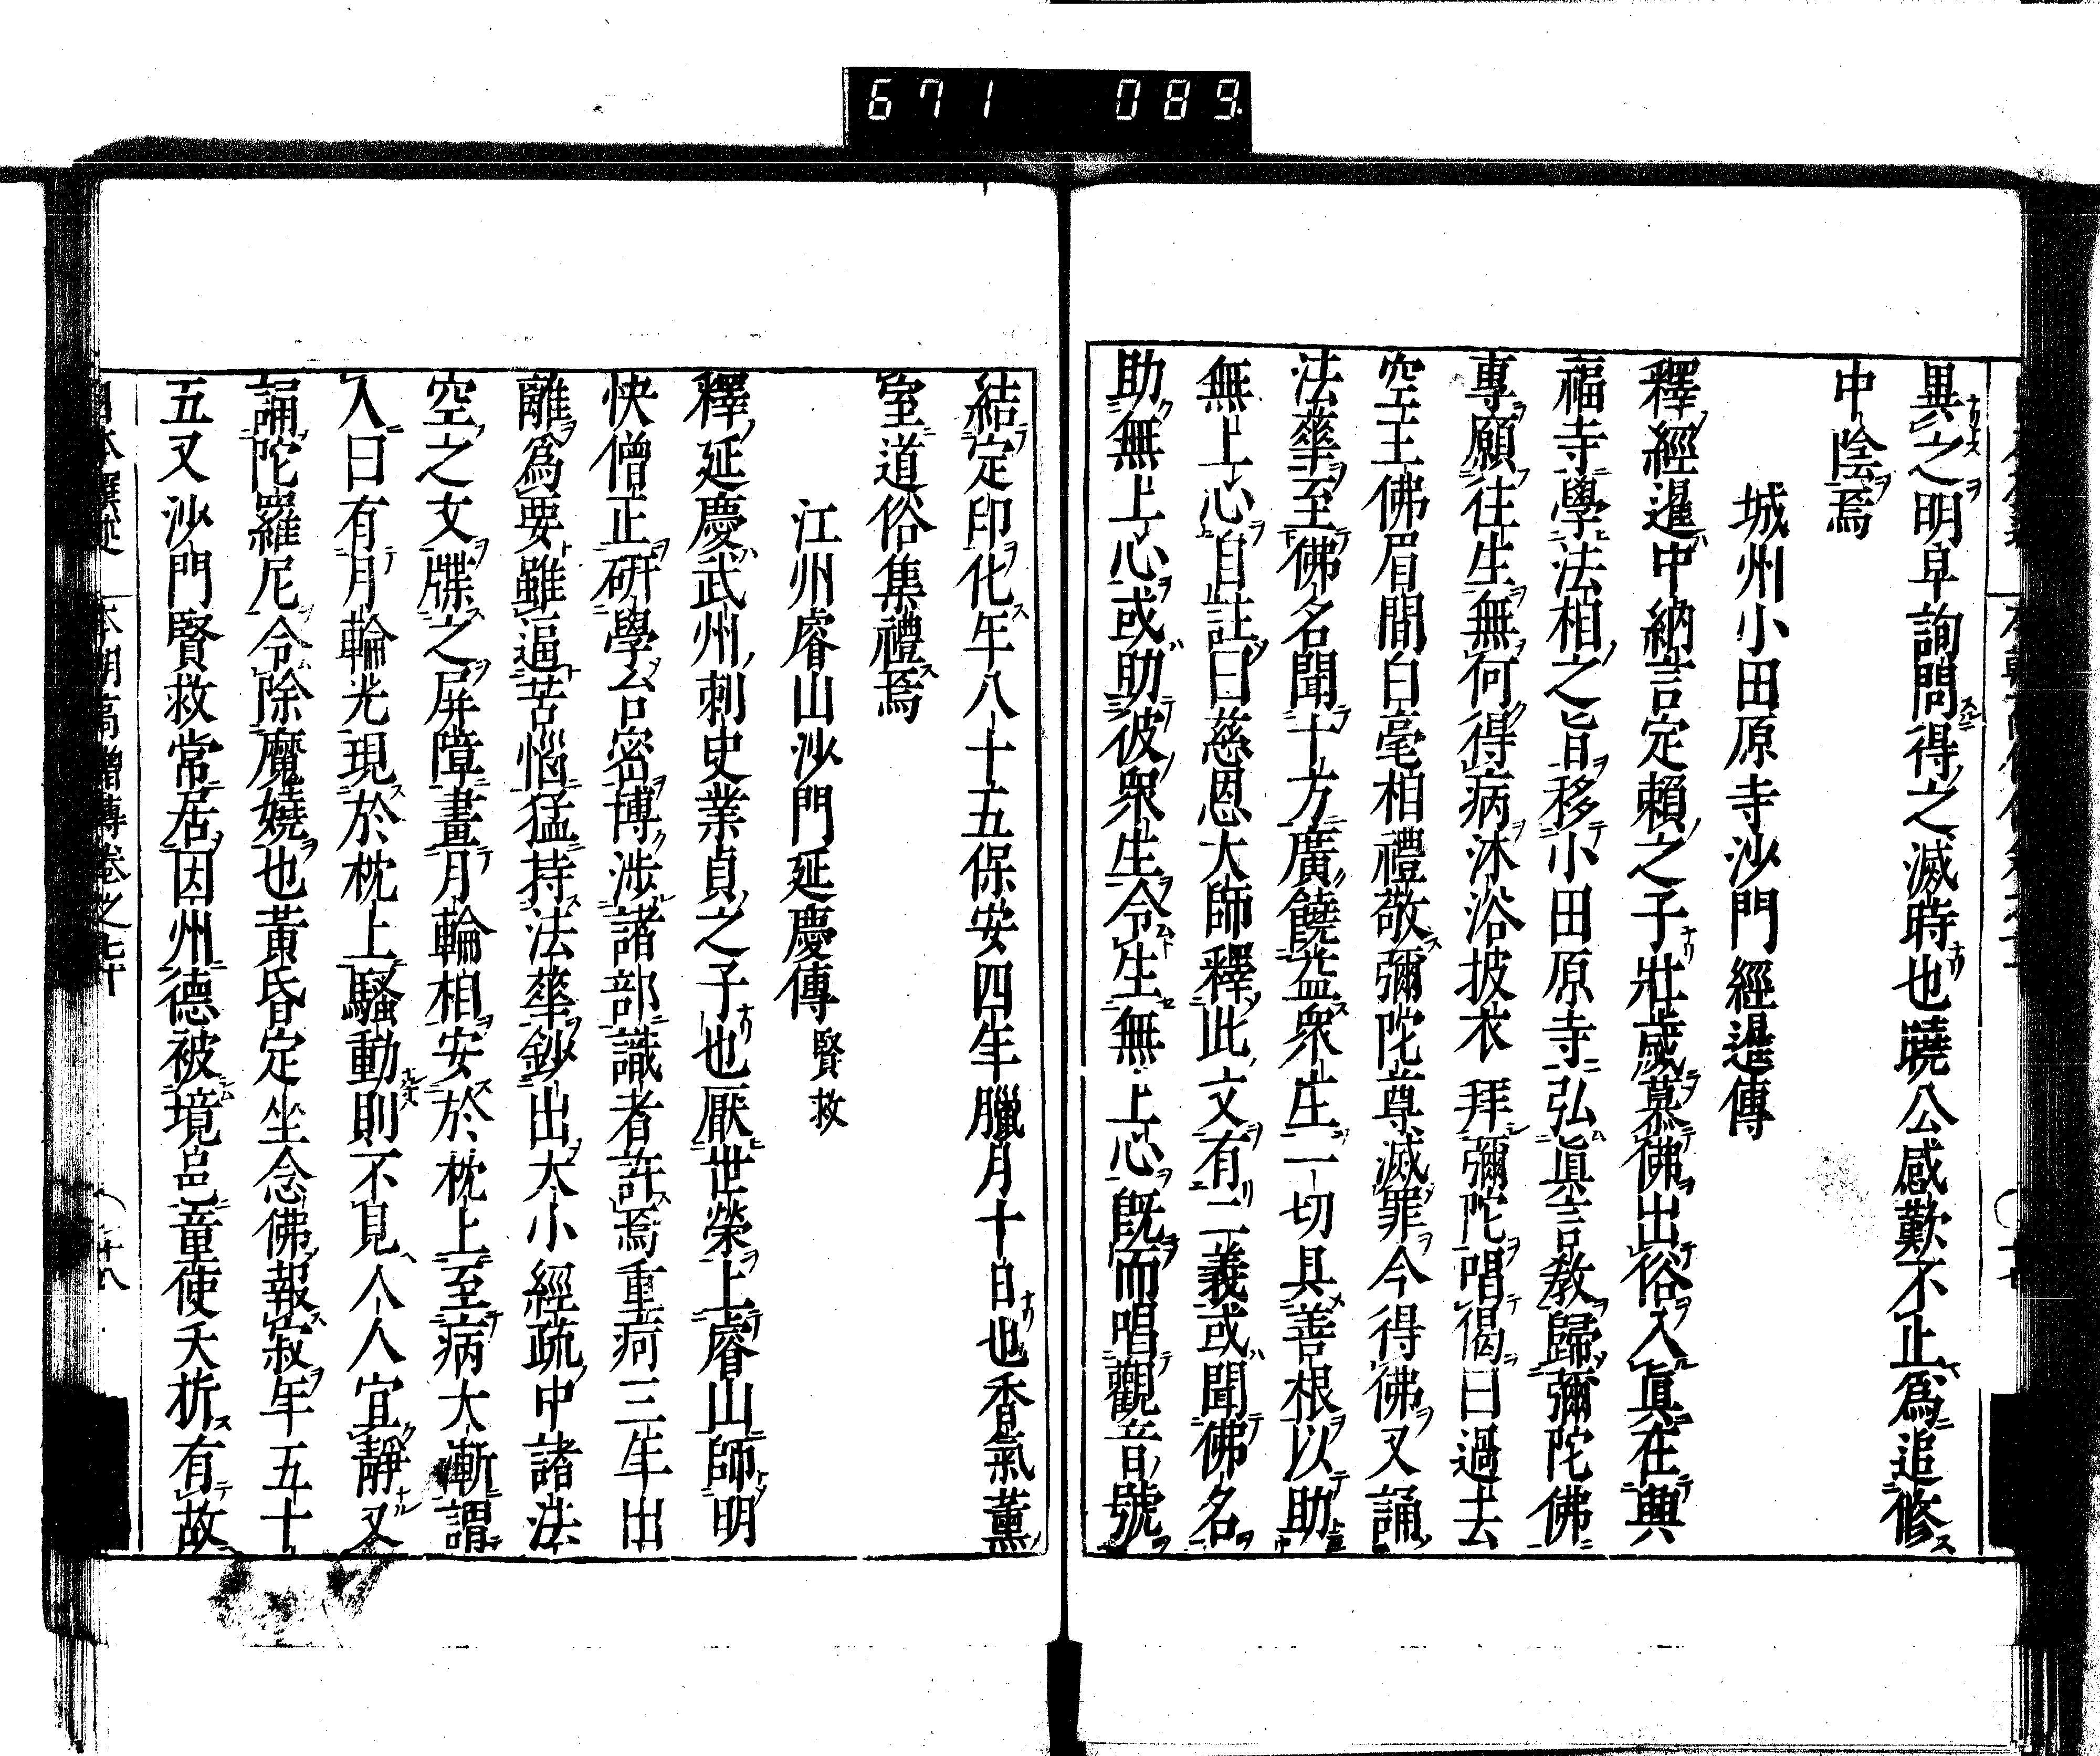 671 089
異之明卓詢問得之滅時也曉公感歎不止爲追修
中陰焉
城州小田原寺沙門經暹傳
釋經暹中納言定賴之子壯歲慕佛出俗入眞在興
福寺學法相之旨移小田原寺弘眞言教歸彌陀佛
專願往生無何得病沐浴披衣拜彌陀唱偈曰過去
空王佛眉間白毫相禮敬彌陀尊滅罪今得佛又誦
法華至佛名聞十方廣饒益衆生一切具善根以助
無上心自註曰慈恩大師釋此文有二義或聞佛名
助無上心或助彼衆生令生無上心旣而唱觀音號
結定印化年八十五保安四年臘月十日也香氣薰
室道俗集禮焉
江州睿山沙門延慶傳 賢救
釋延慶武州刺史業貞之子也厭世榮上睿山師明
快僧正研學台密博涉諸部識者許焉重痾三年出
離爲要雖逼苦惱猛持法華鈔出大小經疏中諸法
空之文牒之屏障畫月輪相安於枕上至病大漸謂
人曰有月輪光現於枕上騷動則不見人人宜靜又
誦陀羅尼令除魔嬈也黃昏定坐念佛報寂年五十
五又沙門賢救常居因州德被境邑童使夭折有故
本朝高僧傳卷之七十